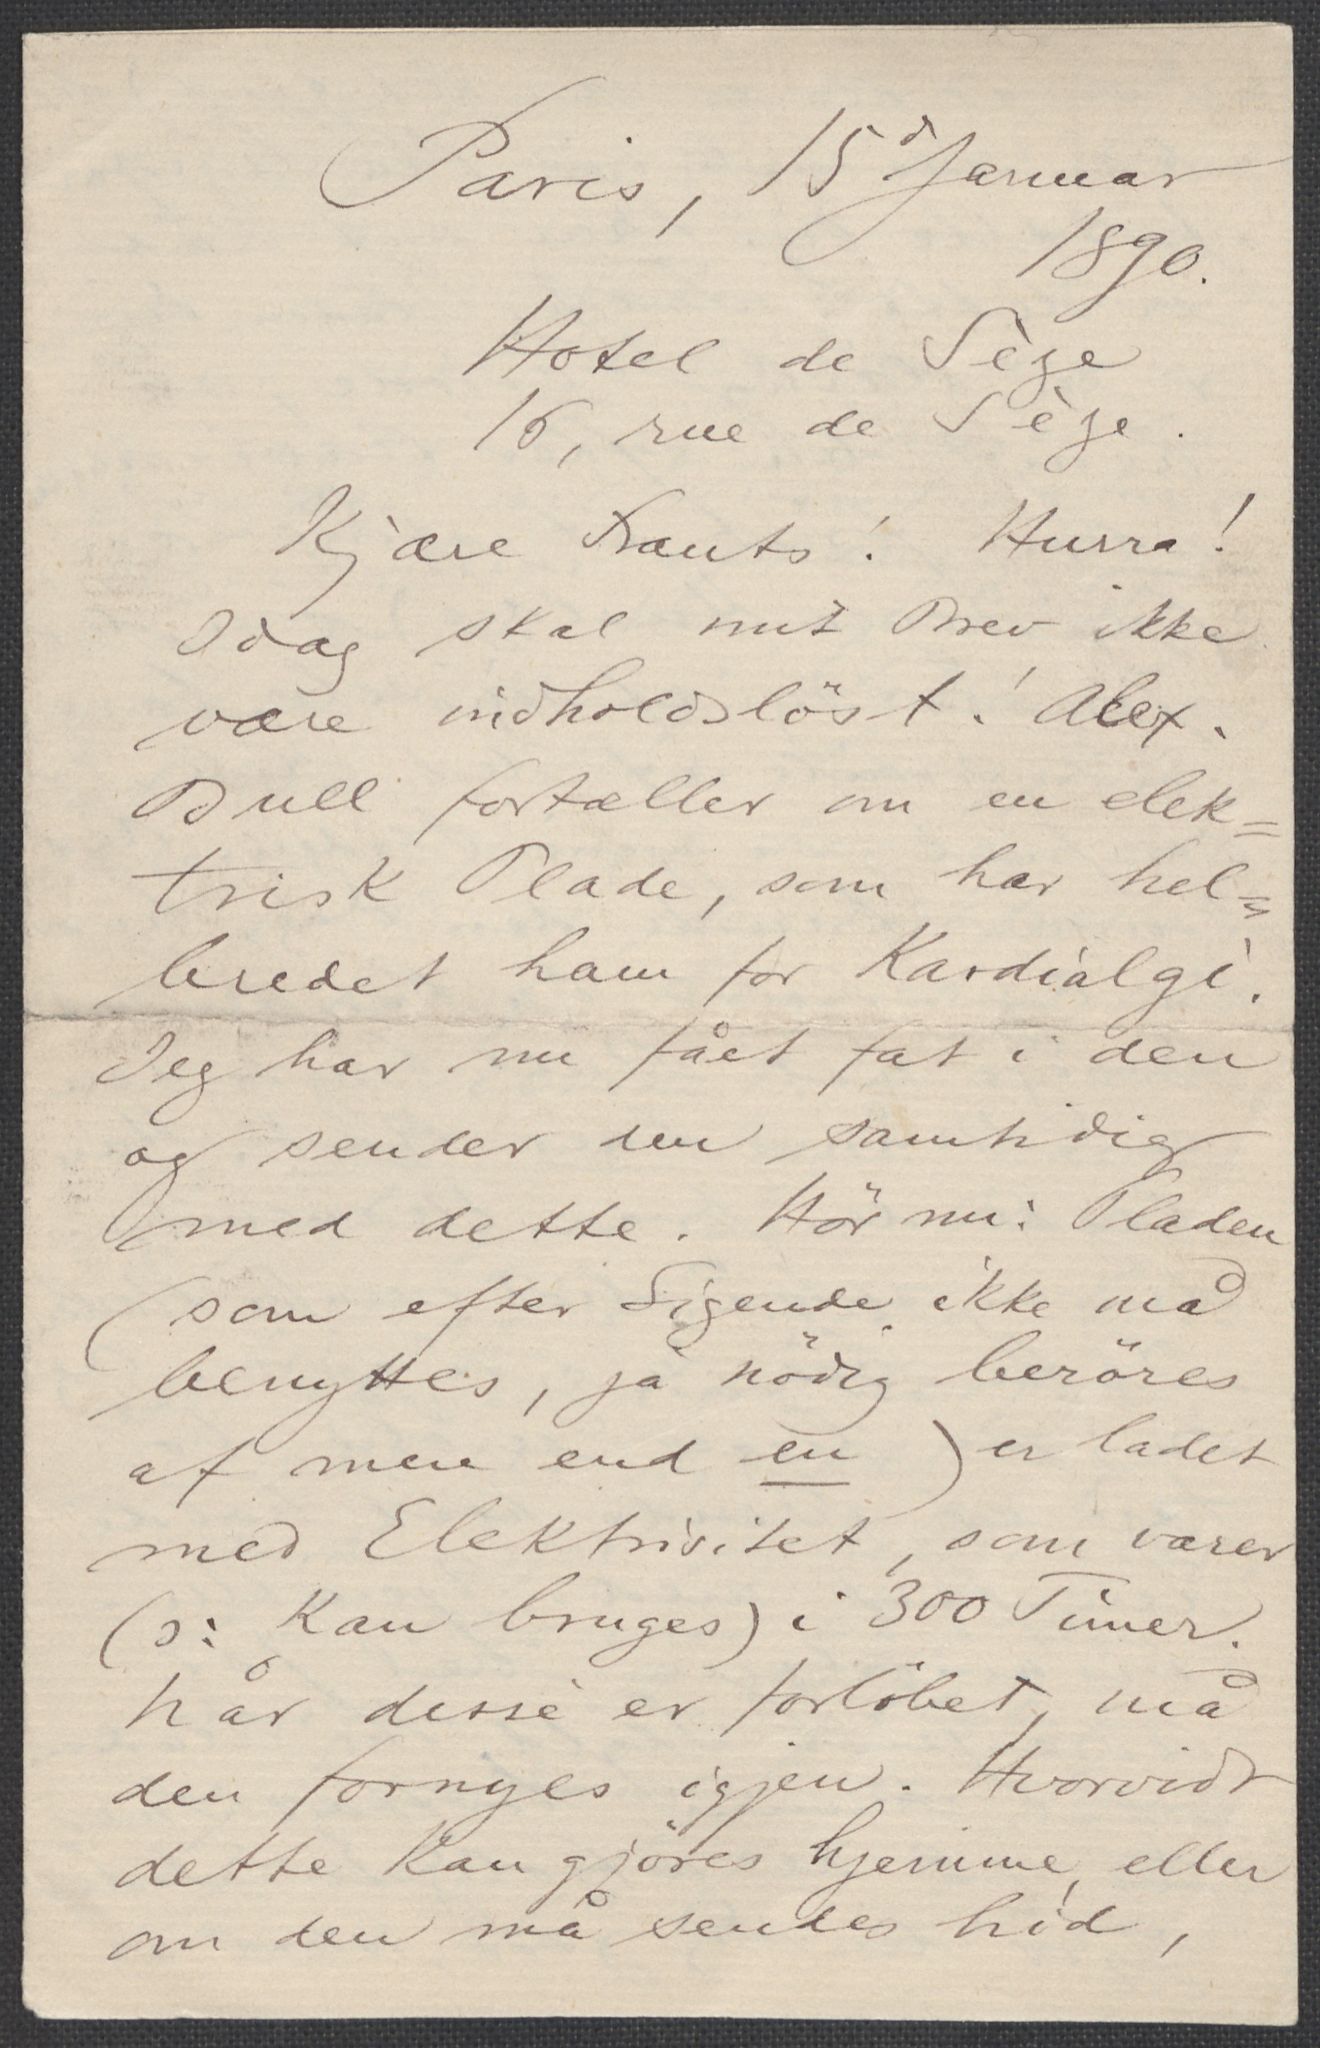 Paris, 15d Januar
1890.
Hotel de Sèze
16, rue de Sèze.
Kjære Frants! Hurra!
Idag skal mit Brev ikke
være indholdslöst! Alex.
Bull fortæller om en elek=
trisk Plade, som har hel=
bredet ham for Kardialgi.
Jeg har nu fået fat i den
og sender den samtidig
med dette. Hör nu: Pladen
(som efter Sigende ikke må
benyttes, ja nödig beröres
af mere end en) er ladet
med Elektrisitet, som varer
(ɔ: kan bruges) i 300 Timer.
Når disse er forlöbet, må
den fornyes igjen. Hvorvidt
dette kan gjöres hjemme, eller
om den må sendes hid,